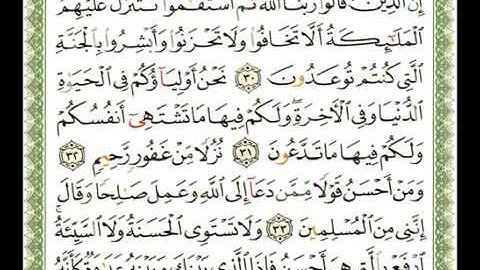 إِنَّ ٱلَّذِينَ قَالُوا۟ رَبُّنَا ٱللَّهُ ثُمَّ ٱسْتَقَٰمُوا۟ تَتَنَزَّلُ عَلَيْهِمُ
ٱلْمَلَٰٓئِكَةُ أَلَّا تَخَافُوا۟ وَلَا تَحْزَنُوا۟ وَأَبْشِرُوا۟ بِٱلْجَنَّةِ
ٱلَّتِى كُنتُمْ تُوعَدُونَ ٣٠ نَحْنُ أَوْلِيَآؤُكُمْ فِى ٱلْحَيَوٰةِ
ٱلدُّنْيَا وَفِى ٱلْءَاخِرَةِ ۖ وَلَكُمْ فِيهَا مَا تَشْتَهِىٓ أَنفُسُكُمْ
وَلَكُمْ فِيهَا مَا تَدَّعُونَ ٣١ نُزُلًا مِّنْ غَفُورٍ رَّحِيمٍ ٣٢
وَمَنْ أَحْسَنُ قَوْلًا مِّمَّن دَعَآ إِلَى ٱللَّهِ وَعَمِلَ صَٰلِحًا وَقَالَ
إِنَّنِى مِنَ ٱلْمُسْلِمِينَ ٣٣ وَلَا تَسْتَوِى ٱلْحَسَنَةُ وَلَا ٱلسَّيِّئَةُ ۚ
ٱدْفَعْ بِٱلَّتِى هِىَ أَحْسَنُ فَإِذَا ٱلَّذِى بَيْنَكَ وَبَيْنَهُۥ عَدَٰوَةٌ كَأَنَّهُۥ